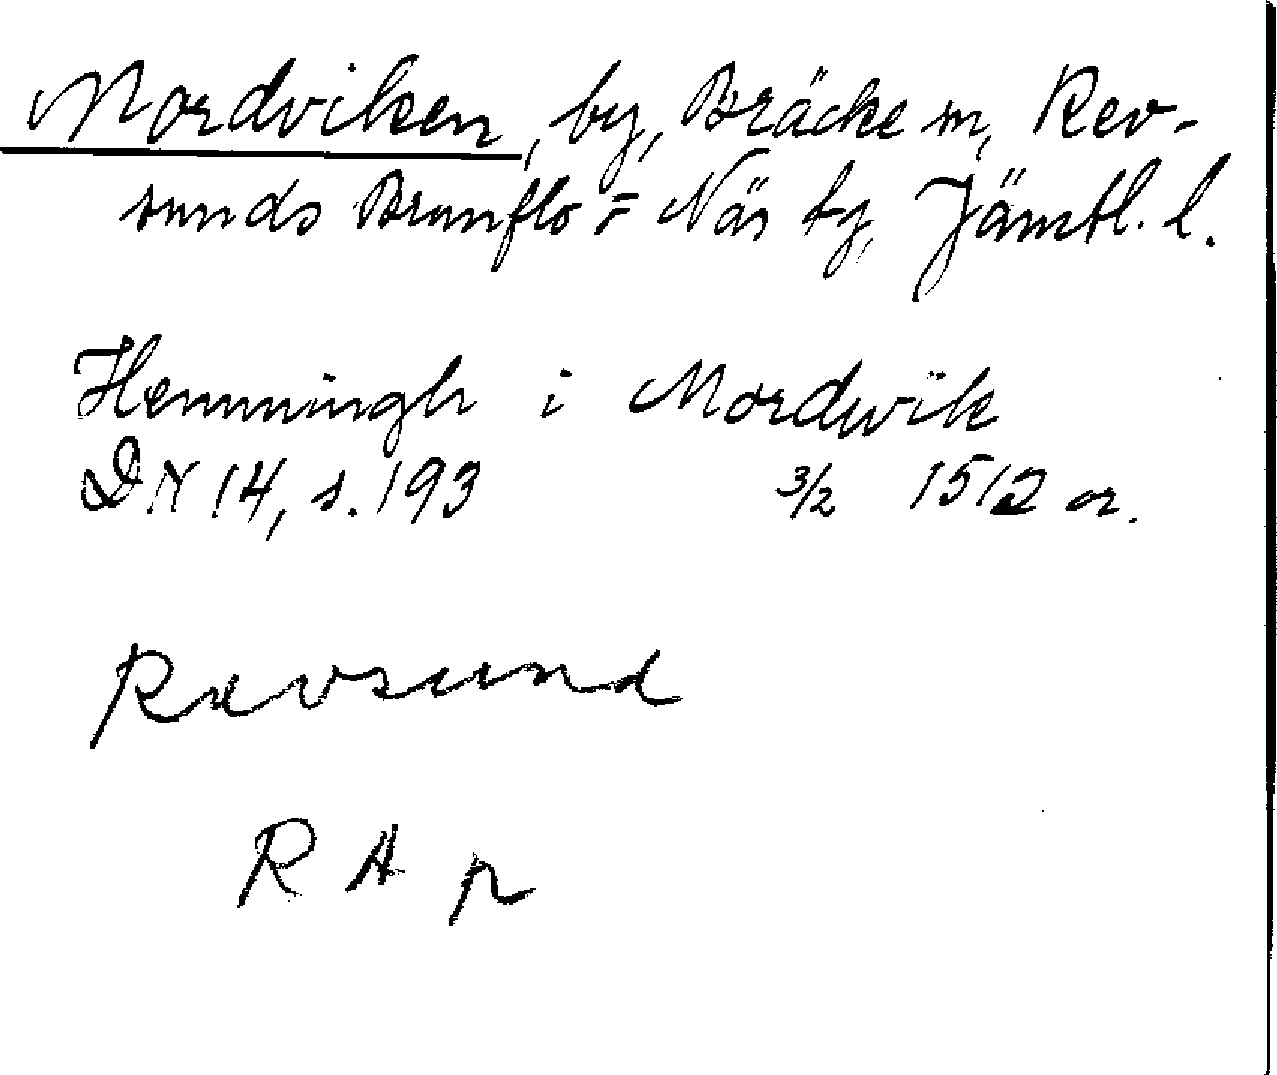 Mordviken, by, Bräcke sn, Rev-
sunds Brunflo = Näs tg, Jämtl. l.
Hemmingh i Mordwik
DN 14, s. 193 3/2 1512 or.
Revsund
RAp